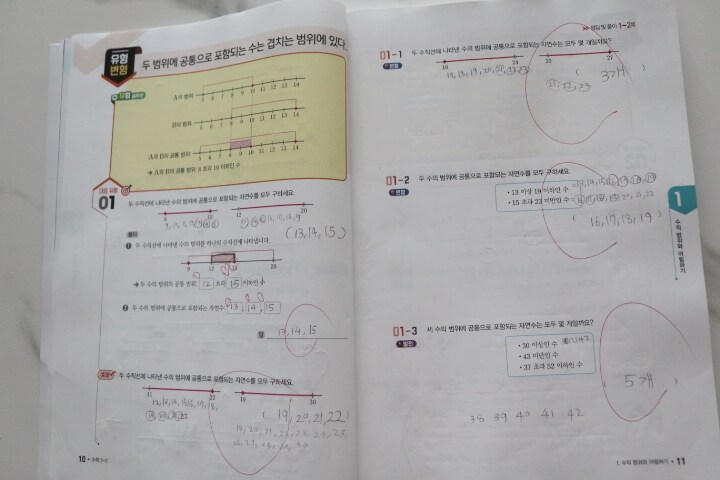 유형
변형
두 범위에 공통으로 포함되는 수는 겹치는 범위에 있다.
A의 범위
5 6 7 8 9 10 11 12 13 14
B의 범위
5 6 7 8 9 10 11 12 13 14
A와 B의 공통 범위
5 6 7 8 9 10 11 12 13 14
→ A와 B의 공통 범위: 8 초과 10 이하인 수
대표 유형
01
두 수직선에 나타낸 수의 범위에 공통으로 포함되는 자연수를 모두 구하세요.
(13, 14, 15)
풀이
❶ 두 수직선에 나타낸 수의 범위를 하나의 수직선에 나타냅니다.
→ 두 수의 범위의 공통 범위: 12 초과 15 이하인 수
❷ 두 수의 범위에 공통으로 포함되는 자연수: 13, 14, 15
답 13, 14, 15
두 수직선에 나타낸 수의 범위에 공통으로 포함되는 자연수를 모두 구하세요.
11 22 19 30
(19, 20, 21, 22)
10 • 수학 5-2
정답 및 풀이 1~2쪽
01-1
변형
두 수직선에 나타낸 수의 범위에 공통으로 포함되는 자연수는 모두 몇 개일까요?
3개
21, 22, 23
01-2
변형
두 수의 범위에 공통으로 포함되는 자연수를 모두 구하세요.
• 13 이상 19 이하인 수
• 15 초과 23 미만인 수
(16, 17, 18, 19)
1
수의 범위와 어림하기
01-3
발전
세 수의 범위에 공통으로 포함되는 자연수는 모두 몇 개일까요?
• 30 이상인 수
• 43 미만인 수
• 37 초과 52 이하인 수
5개
38 39 40 41 42
1. 수의 범위와 어림하기 • 11